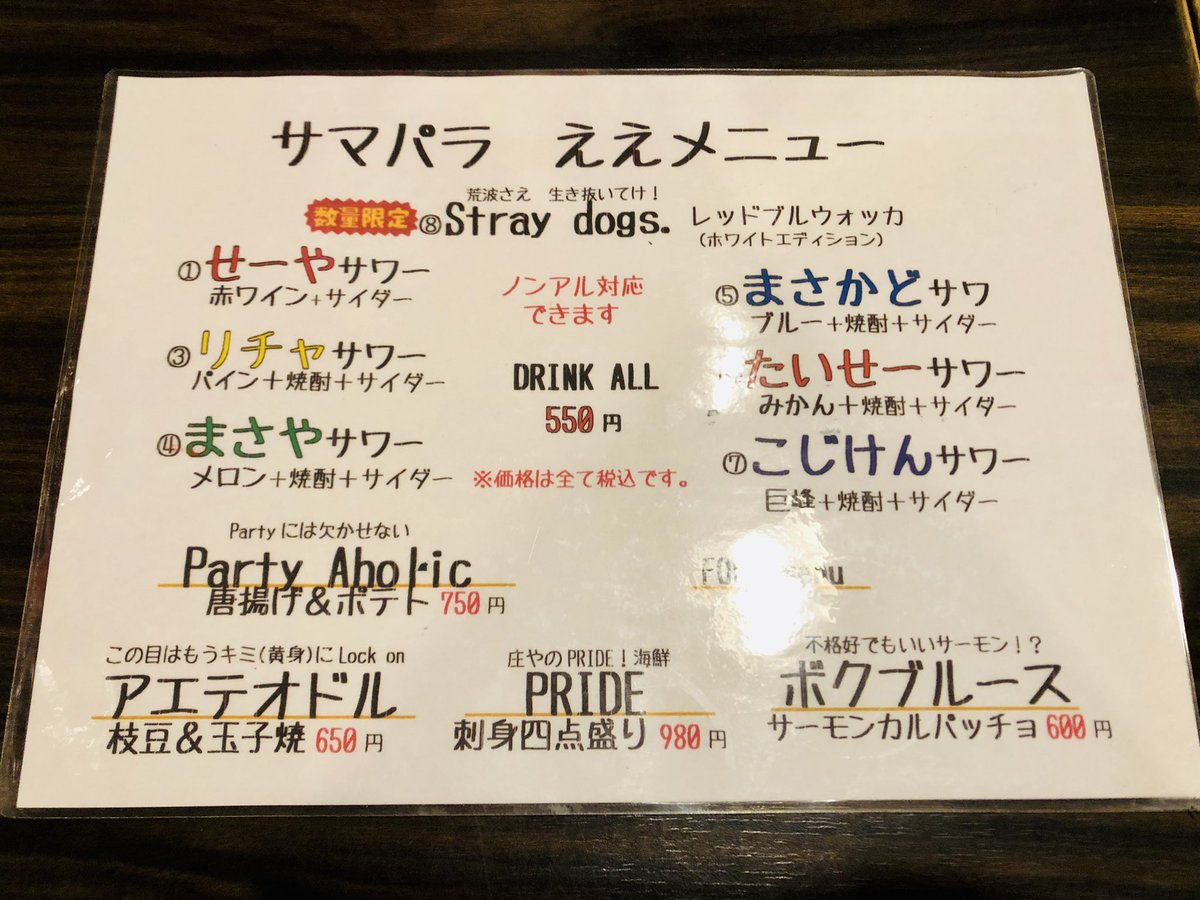 サマパラ ええメニュー
荒波さえ 生き抜いてけ!
数量限定 ⑧Stray dogs. レッドブルウォッカ
(ホワイトエディション)
①せーやサワー
赤ワイン+サイダー
ノンアル対応
できます
⑤まさかどサワ
ブルー+焼酎+サイダー
③リチャサワー
パイン+焼酎+サイダー
DRINK ALL
550円
たいせーサワー
みかん+焼酎+サイダー
④まさやサワー
メロン+焼酎+サイダー
※価格は全て税込です。
⑦こじけんサワー
巨峰+焼酎+サイダー
Partyには欠かせない
Party Aholic
唐揚げ&ポテト 750円
この目はもうキミ(黄身)にLock on
アエテオドル
枝豆&玉子焼 650円
庄やのPRIDE!海鮮
PRIDE
刺身四点盛り 980円
不格好でもいいサーモン!?
ボクブルース
サーモンカルパッチョ 600円